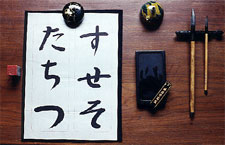 すせそ
たちつ